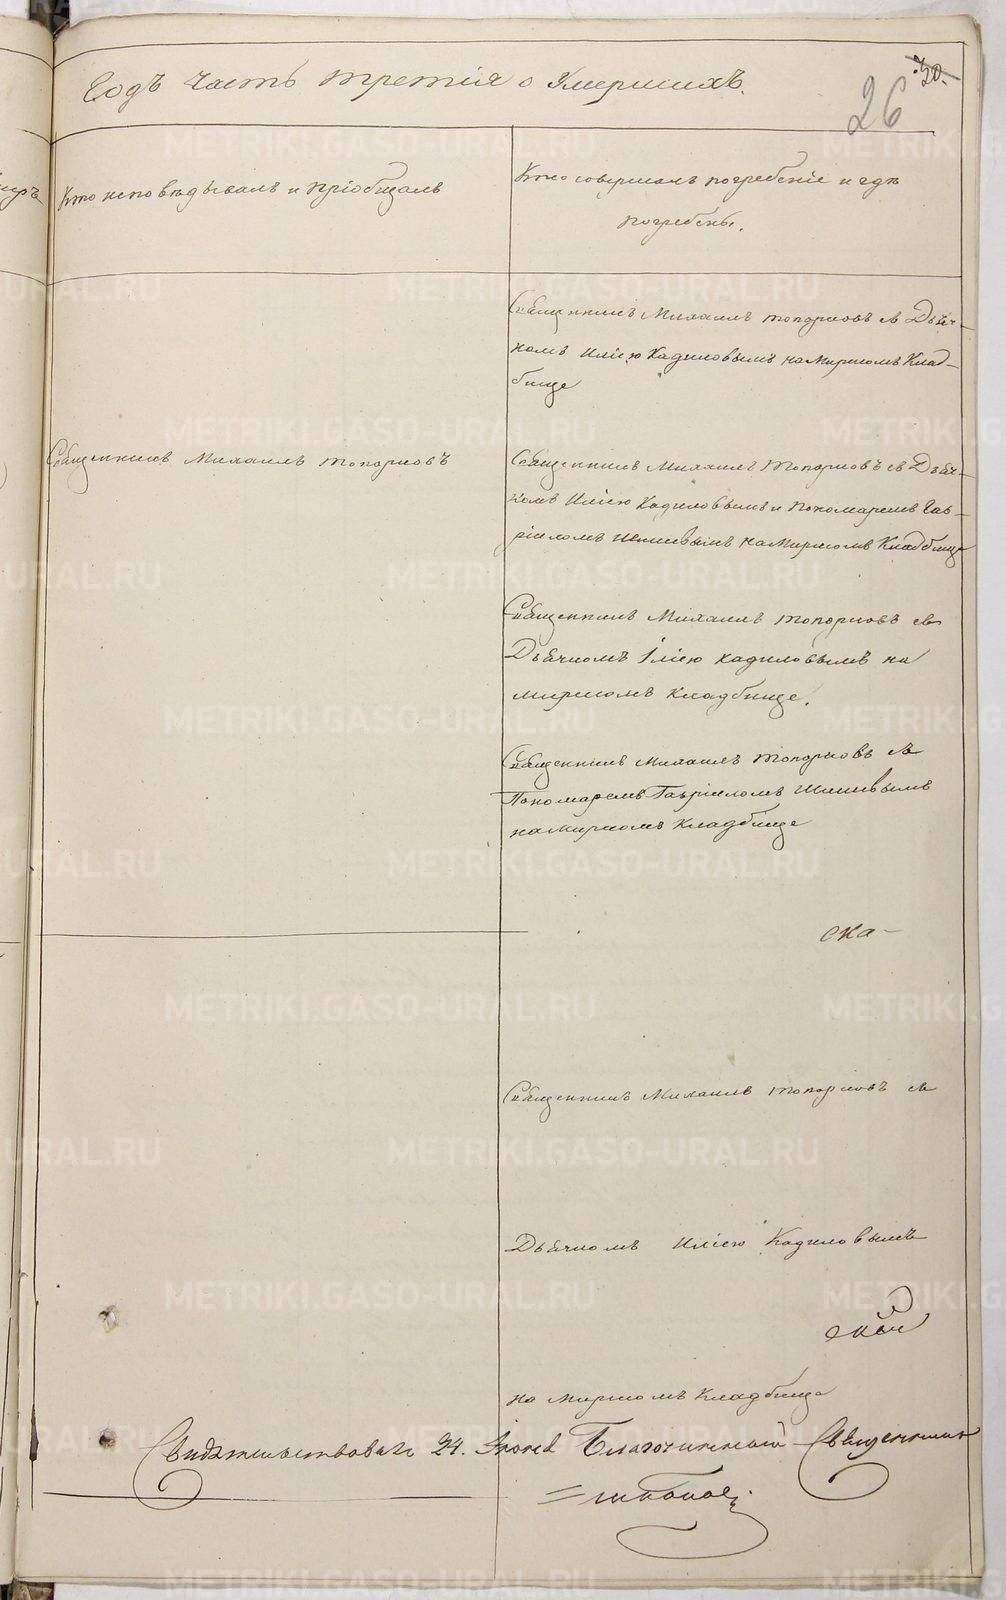 Годъ часть третія о Умершихъ.
20.
26
Кто исповѣдывалъ и пріобщалъ
Кто совершалъ погребеніе и гдѣ
погребены.
Священникъ Михаилъ Топорковъ съ Дьяч-
комъ Иліею Кадиловымъ на Мирском Клад-
бище
Священникъ Михаилъ Топорковъ
Священникъ Михаилъ Топорковъ съ Дьяч-
комъ Иліею Кадиловымъ и пономаремъ Гав-
ріиломъ на Мирскомъ Кладбище
Священникъ Михаилъ Топорковъ съ
Дьячкомъ Іліею Кадиловымъ на
мирскомъ кладбище.
Священникъ Михаилъ Топорковъ съ
Пономаремъ Гавріиломъ
на мирскомъ Кладбище
ска-
Священникъ Михаилъ Топорковъ съ
Дьячкомъ Иліею Кадиловымъ
на мирскомъ Кладбище
Свидѣтельствовалъ 24. Благочинный Священникъ
METRIKI.GASO-URAL.RU